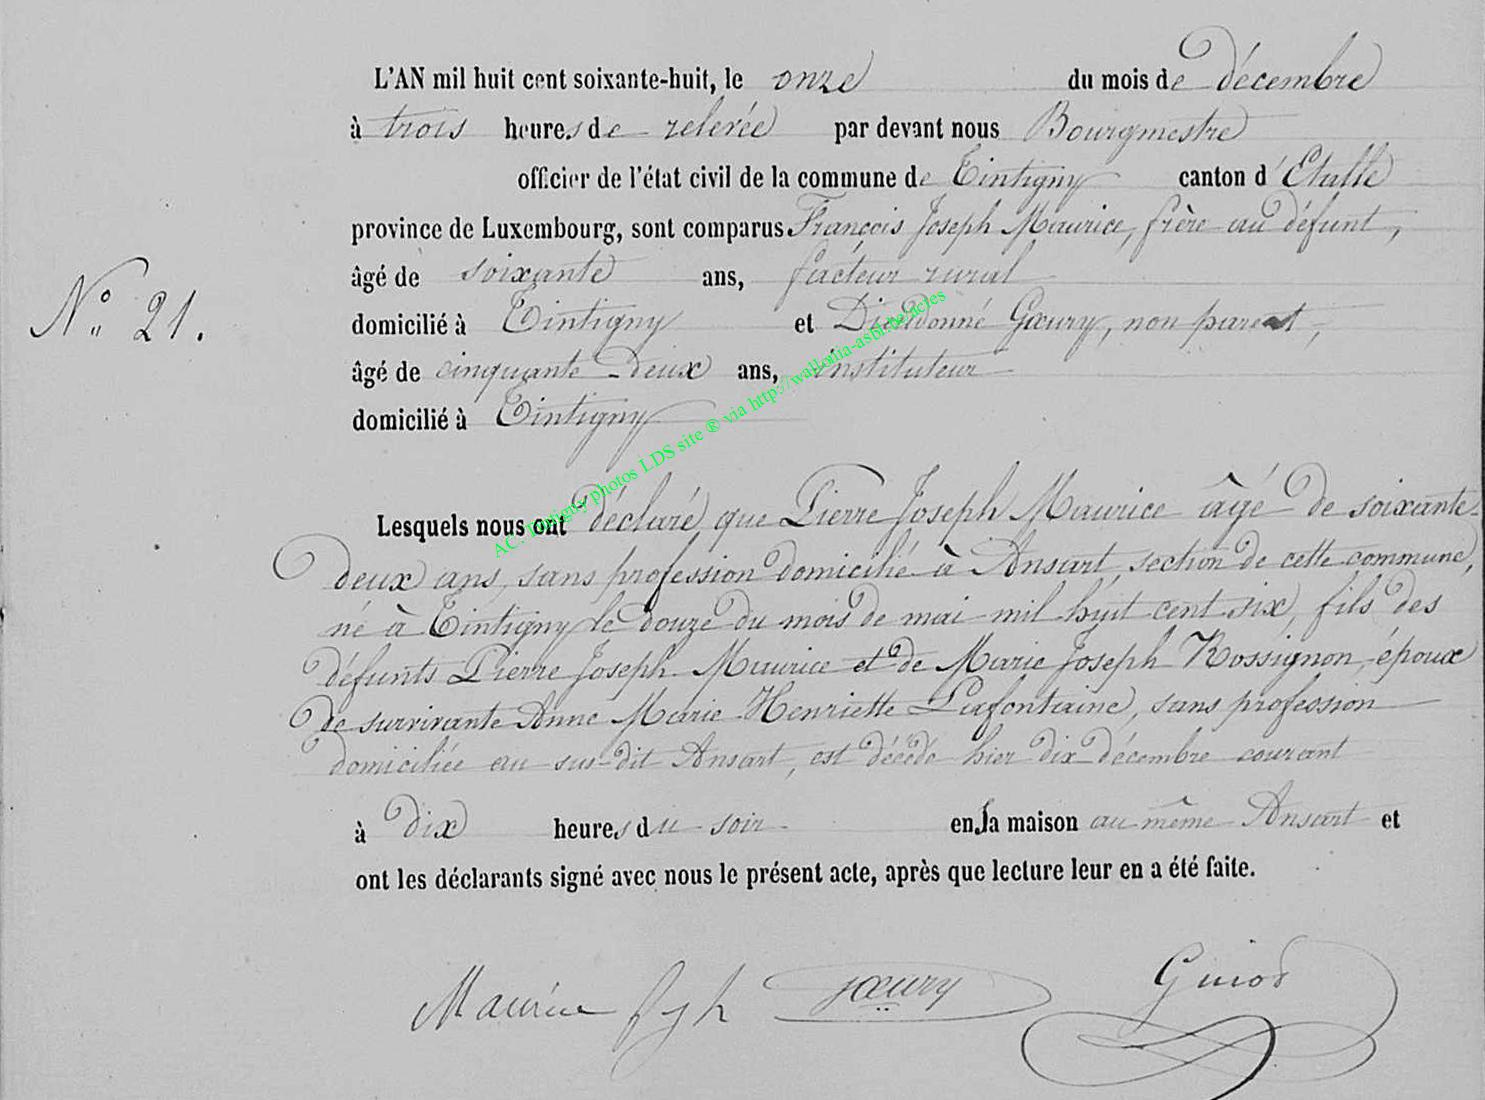 L'AN mil huit cent soixante-huit, le onze du mois de décembre
à trois heures de relevée par devant nous Bourgmestre
officier de l'état civil de la commune de Tintigny canton d'Etalle
province de Luxembourg, sont comparus François Joseph Maurice, frère au défunt,
âgé de soixante ans, facteur rural
N° 21.
domicilié à Tintigny et Dieudonné Gœury, non parent,
âgé de cinquante-deux ans, instituteur
domicilié à Tintigny
AC. Tintigny photos LDS site ® via http://wallonia-asbl.be/actes
Lesquels nous ont déclaré que Pierre Joseph Maurice âgé de soixante-
deux ans, sans profession domicilié à Ansart, section de cette commune,
né à Tintigny le douze du mois de mai mil huit cent six, fils des
défunts Pierre Joseph Maurice et de Marie Joseph Rossignon, époux
de survivante Anne Marie Henriette Lafontaine, sans profession
domiciliée au sus-dit Ansart, est décédé hier dix décembre courant
à dix heures du soir en la maison au même Ansart et
ont les déclarants signé avec nous le présent acte, après que lecture leur en a été faite.
Maurice fsjh gœury Guiot